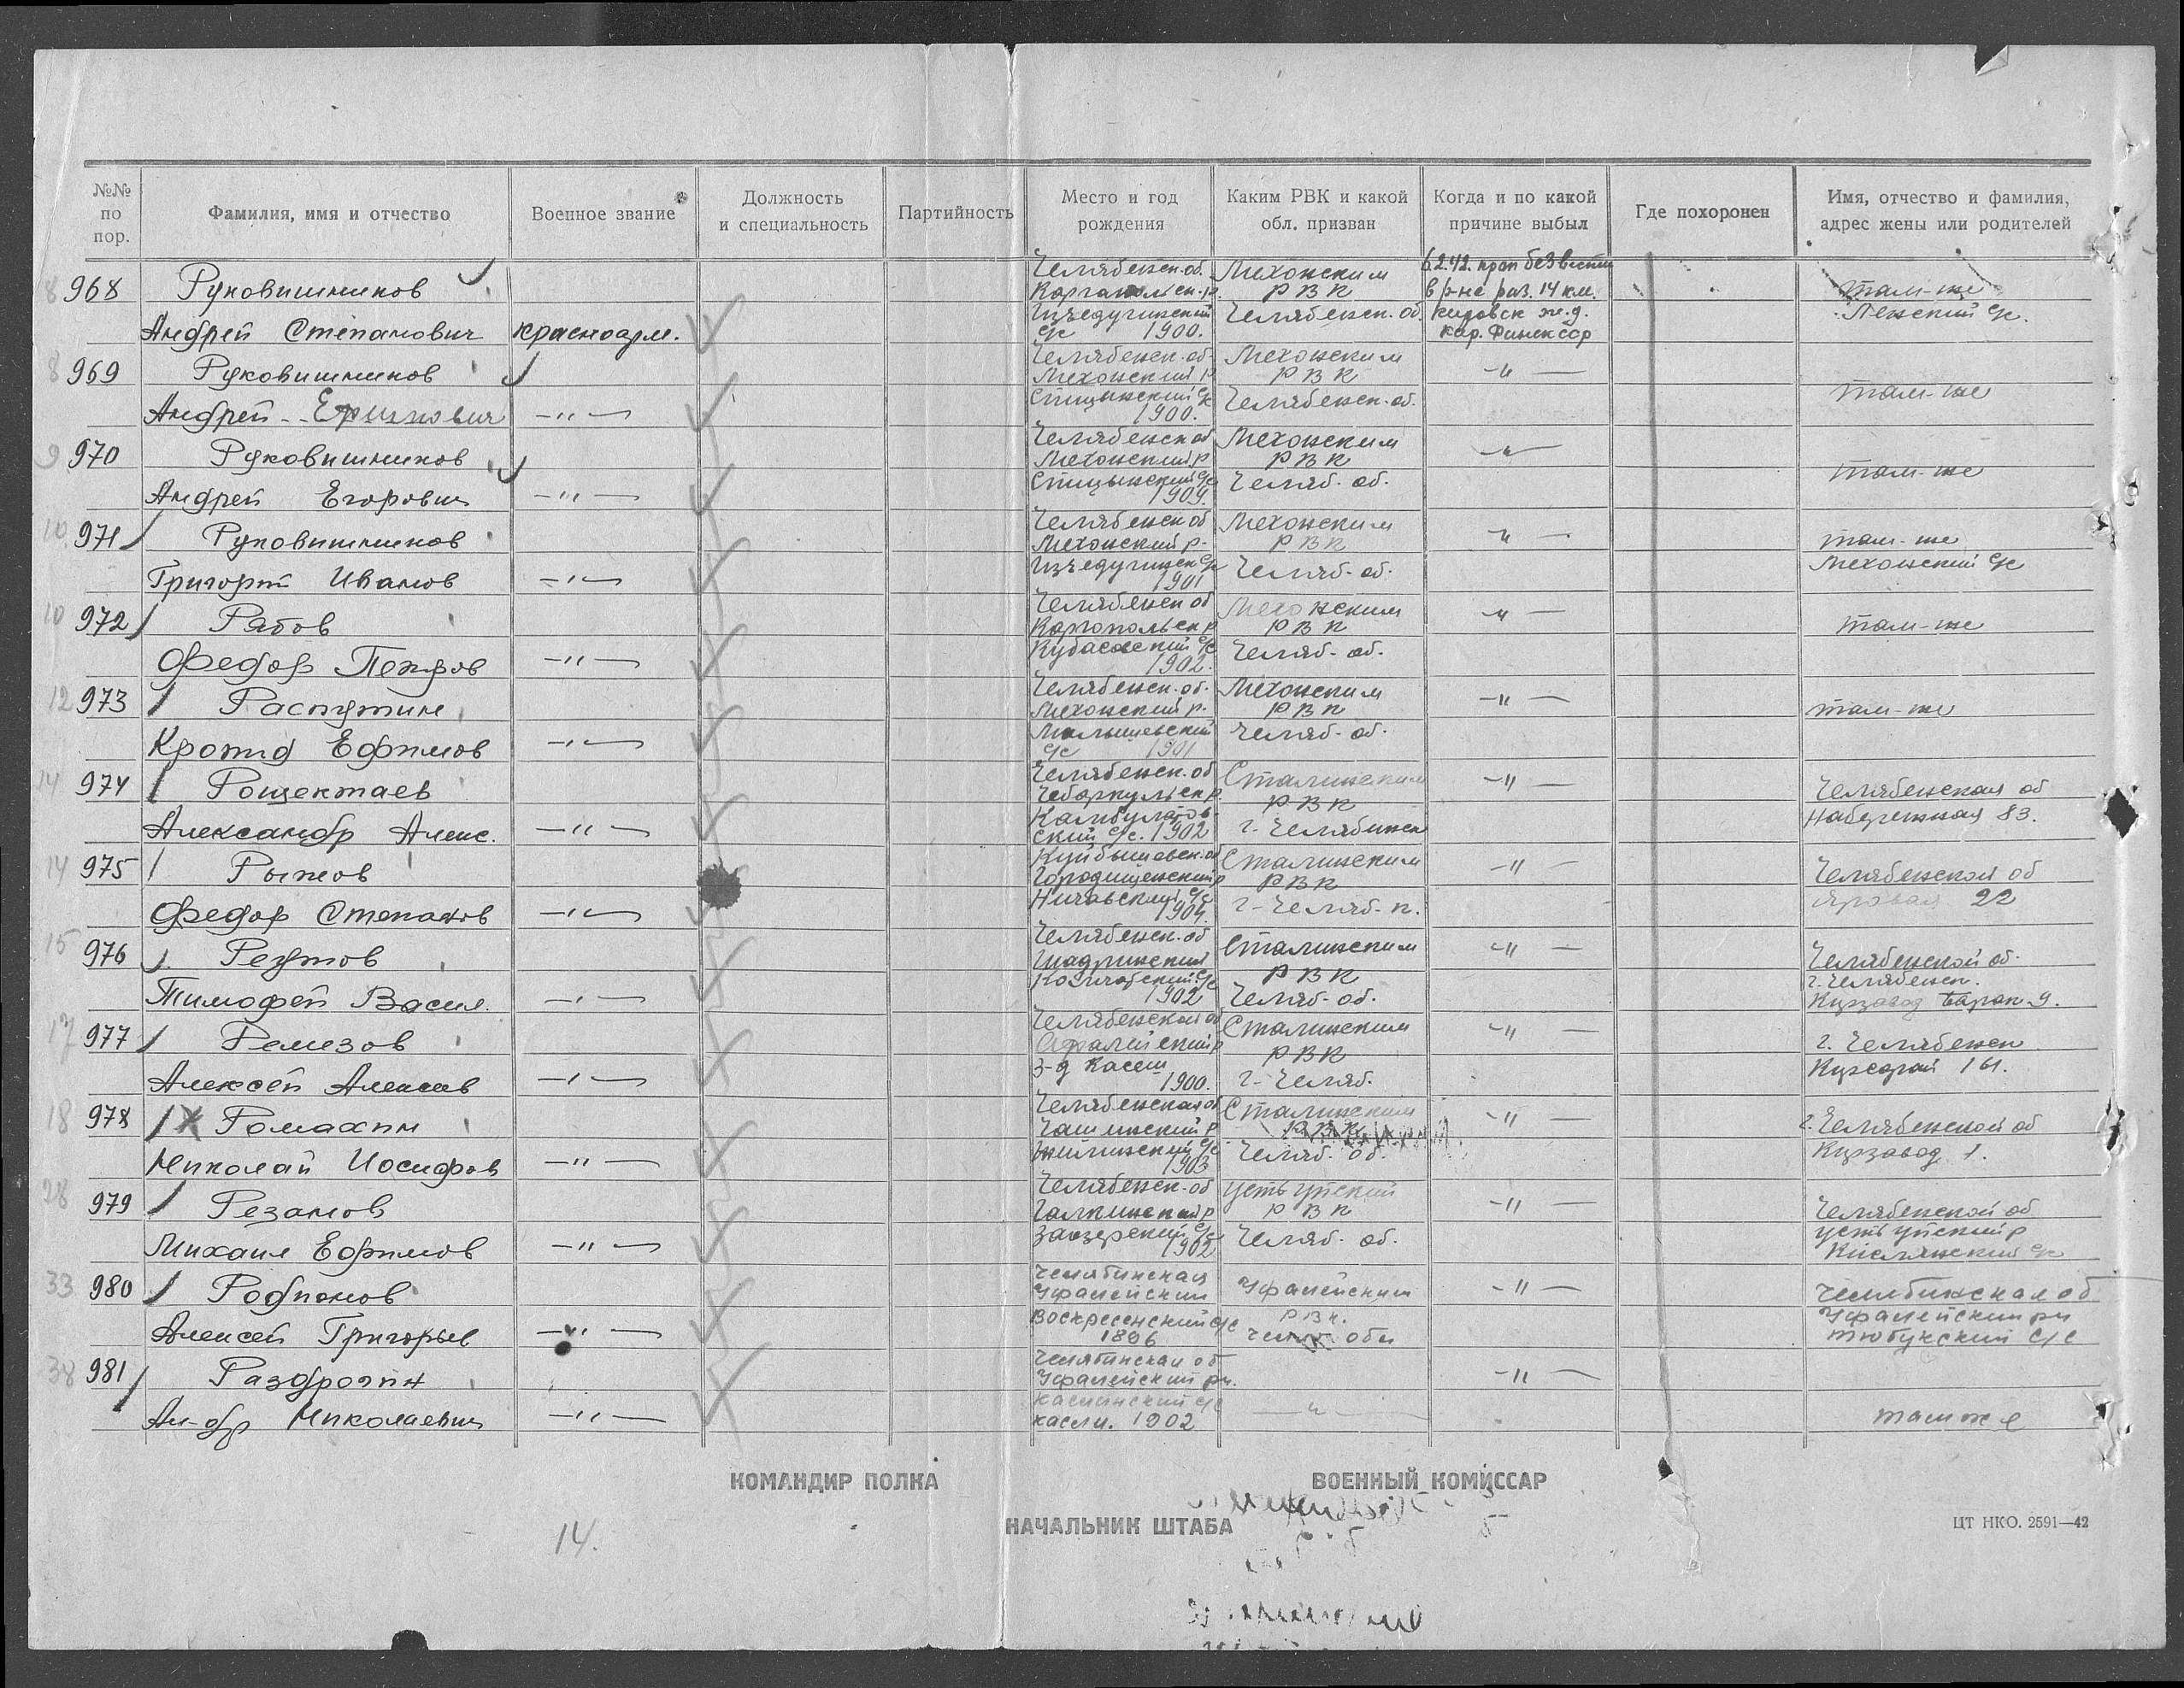 №№ по пор.
Фамилия, имя и отчество
Военное звание
Должность и специальность
Партийность
Место и год рождения
Каким РВК и какой обл. призван
Когда и по какой причине выбыл
Где похоронен
Имя, отчество и фамилия, адрес жены или родителей
8 968 Руковишников
Андрей Степанович красноарм.
Челябенск. об.
Каргапольск. р.
Изъедугинский
с/с 1900.
Мехонским
РВК
Челябенск. об.
6.2.42. проп без вести
в р-не раз. 14 км.
Кировск ж.д.
Кар. Финской ССР
там-же
с/с.
8 969 Руковишников
Андрей -"-
Челябенск. об.
Мехонский р.
Спицынский с/с
1900.
Мехонским
РВК
Челябенск. об.
-"-
там-же
9 970 Руковишников
Андрей Егорович -"-
Челябенск об
Мехонский р
Спицынский с/с
1909.
Мехонским
РВК
Челяб. об.
-"-
там-же
10 971 Руковишников
Григорий Иванов -"-
Челябенск об
Мехонский р.
Изъедугинск с/с
1901
Мехонским
РВК
Челяб. об.
-"-
там-же
Мехонский с/с
10 972 Рябов
Федор Петров -"-
Челябенск об
Каргопольск р
с/с
1902.
Мехонским
РВК
Челяб. об.
-"-
там-же
12 973 Распутин
Кронид Ефимов -"-
Челябенск. об.
Мехонский р.
с/с 1901
Мехонским
РВК
Челяб. об.
-"-
там-же
14 974 Рощектаев
Александр Алекс. -"-
Челябенск. об
Чебаркульск р.
Камбулатов-
ский с/с. 1902
Сталинским
РВК
г. Челябинск
-"-
Челябенская об
Набережная 83.
14 975 Рыжов
Федор Степанов -"-
Куйбышевск. об
Городищенский р
с/с
1904.
Сталинским
РВК
г. Челяб-к.
-"-
Челябенской об
Яровая 22
15 976 Реутов
Тимофей Васил. -"-
Челябенск. об
Шадринский
с/с
1902
Сталинским
РВК
Челяб. об.
-"-
Челябенской об.
г. Челябенск.
Кирзавод барак 9.
17 977 Ремезов
Алексей Алексеев -"-
Челябенской об
Уфалейский р
з-д Касли
1900.
Сталинским
РВК
г. Челяб.
-"-
г. Челябенск
161.
18 978 Ромахин
Николай Иосифов -"-
Челябенская об
Чашинский р
с/с
1903
Сталинским
РВК
Челяб. об.
-"-
г. Челябенской об
Кирзавод 1.
28 979 Резанов
Михаил Ефимов -"-
Челябенск. об
Галкинский р
Заозерский с/с
1902
Усть Уйский
РВК
Челяб. об.
-"-
Челябенской об
Усть Уйский р
Кислянский с/с
33 980 Родионов
Алексей Григорьев -"-
Челябинская
Уфалейский
Воскресенский с/с
1896
Уфалейский
РВК.
Челяб. обл
-"-
Челябинская об
Уфалейский рн
Тюбукский с/с
38 981 Раздрогин
Ал-др Николаевич -"-
Челябинская об
Уфалейский рн.
Каслинский с/с
Касли. 1902
-"-
-"-
там же
КОМАНДИР ПОЛКА
ВОЕННЫЙ КОМИССАР
НАЧАЛЬНИК ШТАБА
14.
ЦТ НКО. 2591—42